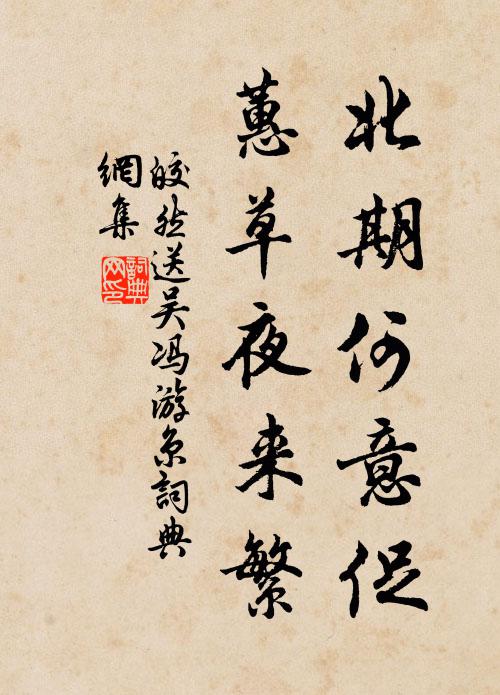 北期何意促
蕙草夜来繁
皎然送吴冯游京詞典
網集
詞典
网印